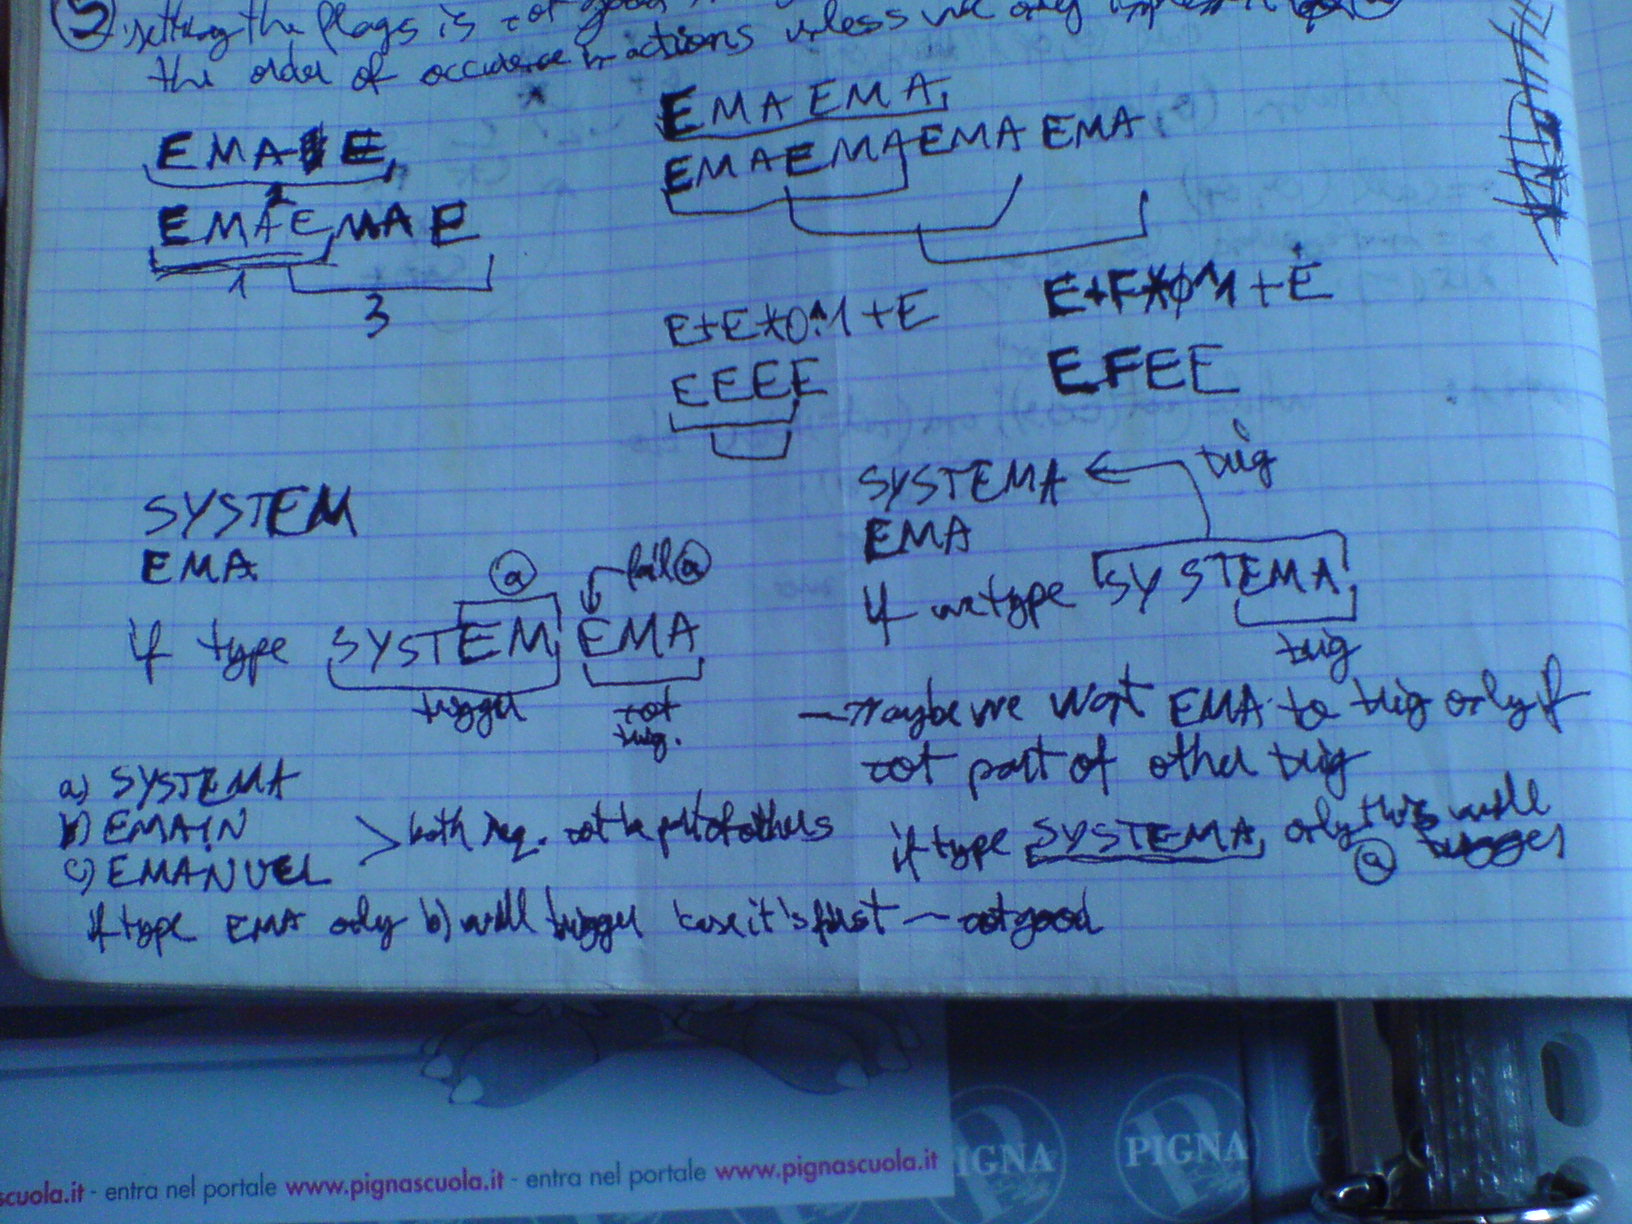 5 setting the flags is not good unless we only
the order of occurence in actions
EMA E
2
EMAEMAE
1
3
EMAEMA
EMAEMAEMAEMA
E+E*0^1+E
EEEE
E+F*0^1+E
EFEE
SYSTEM
EMA
a
fail a
If type SYSTEM EMA
trigger
not
trig.
SYSTEMA
trig
EMA
If we type SYSTEMA
trig
- Maybe we want EMA to trig only if
not part of other trig
if type SYSTEMA only this will
a trigger
a) SYSTEMA
b) EMAIN
c) EMANUEL
> both req. not be part of others
if type EMA only b) will trigger 'case it's first - not good
scuola.it - entra nel portale www.pignascuola.it - entra nel portale www.pignascuola.it
IGNA
PIGNA
P